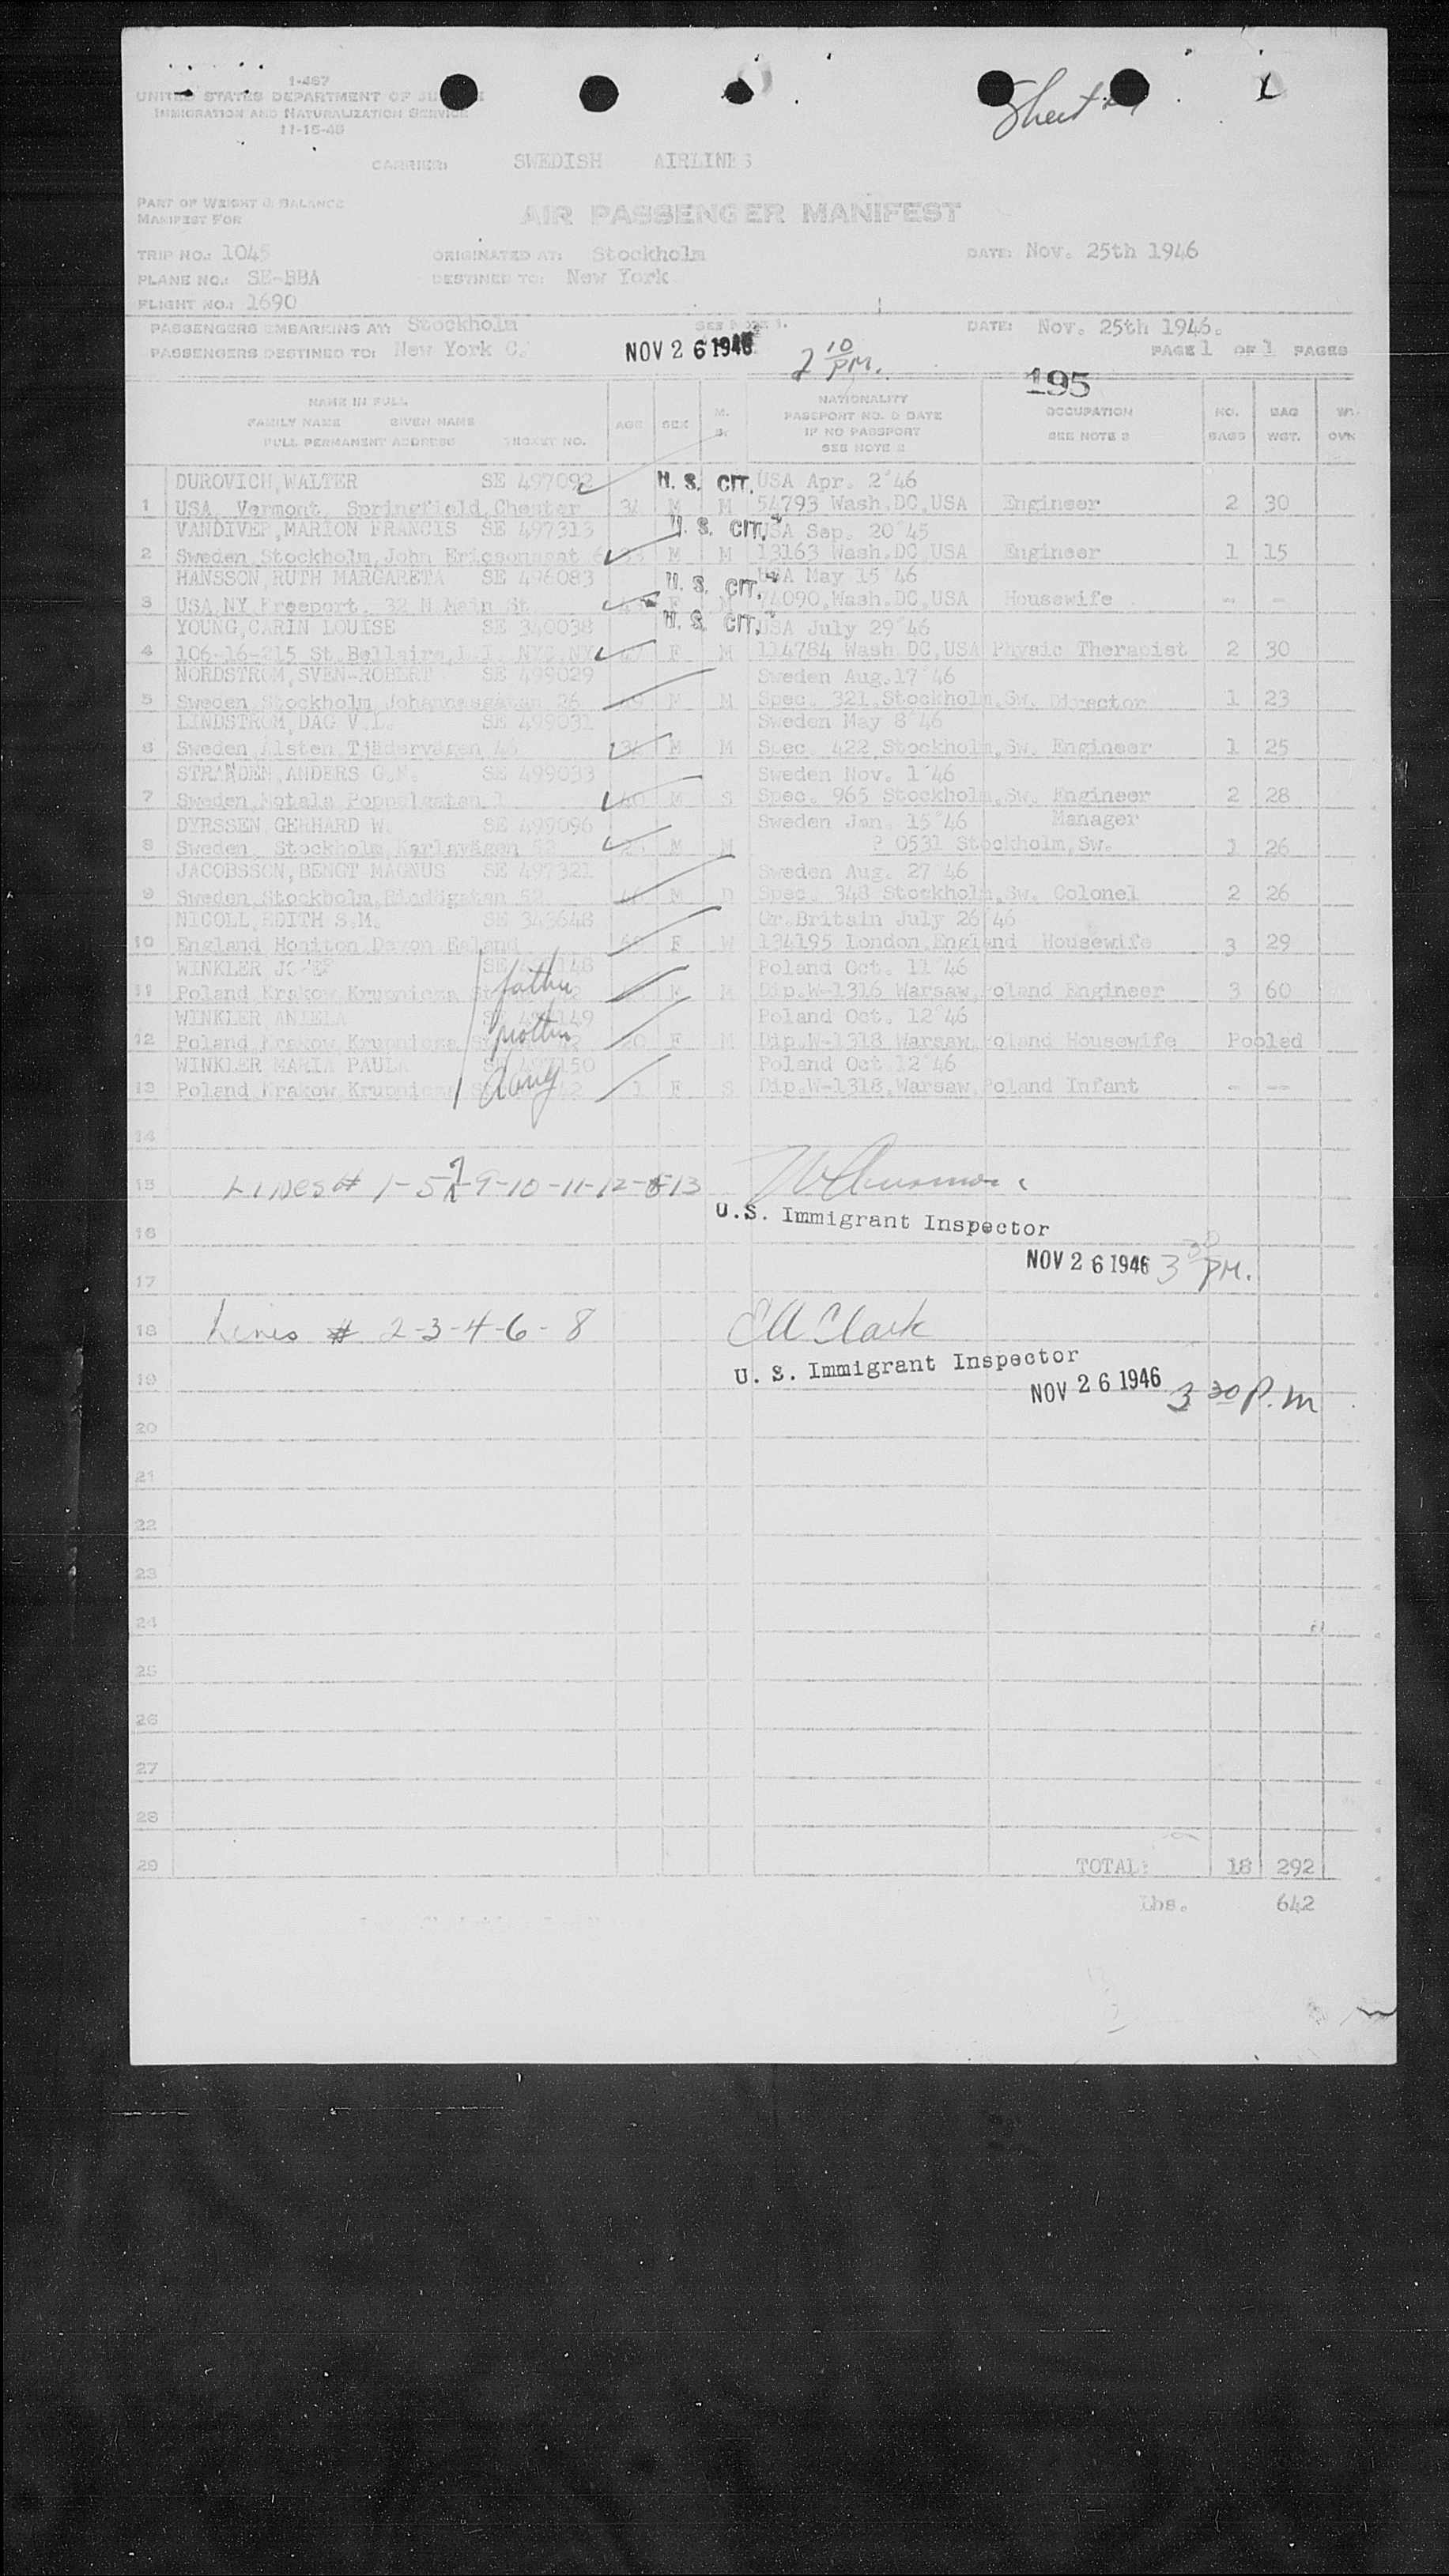 1-467
UNITED STATES DEPARTMENT OF
IMMIGRATION AND NATURALIZATION SERVICE
11-15-45
Sheet #1
CARRIER: SWEDISH AIRLINES
PART OF WEIGHT & BALANCE
MANIFEST FOR
AIR PASSENGER MANIFEST
TRIP NO.: 1045 ORIGINATED AT: Stockholm DATE: Nov. 25th 1946
PLANE NO.: SE-BBA DESTINED TO: New York
FLIGHT NO.: 1690
PASSENGERS EMBARKING AT: Stockholm SEE NOTE 1. DATE: Nov. 25th 1946.
PASSENGERS DESTINED TO: New York C. NOV 26 1946 2 10 PM. PAGE 1 OF 1 PAGES
195
NAME IN FULL NATIONALITY
FAMILY NAME GIVEN NAME AGE SEX M. S. PASSPORT NO. & DATE OCCUPATION NO. BAG WT.
FULL PERMANENT ADDRESS TICKET NO. IF NO PASSPORT SEE NOTE 2 BAGS WGT. OVR
SEE NOTE 2
DUROVICH,WALTER SE 497092 U. S. CIT. USA Apr. 2 46
1 USA, Vermont, Springfield,Chester 34 M M 54793 Wash.DC,USA Engineer 2 30
VANDIVER,MARION FRANCIS SE 497313 U. S. CIT. USA Sep. 20 45
2 Sweden,Stockholm,John Ericsonsgat 6 M M 13163 Wash.DC,USA Engineer 1 15
HANSSON,RUTH MARGARETA SE 496083 U. S. CIT. USA May 15 46
3 USA,NY Freeport, 32 N Main St F M 74090,Wash.DC,USA Housewife - -
YOUNG,CARIN LOUISE SE 340038 U. S. CIT. USA July 29 46
4 106-16-215 St.Bellaire,L.I. NYC,NY F M 114784 Wash.DC,USA Physic Therapist 2 30
NORDSTROM,SVEN-ROBERT SE 499029 Sweden Aug.17 46
5 Sweden Stockholm Johannesgatan 26 M M Spec. 321,Stockholm,Sw. Director 1 23
LINDSTROM,DAG V.L. SE 499031 Sweden May 8 46
6 Sweden Alsten Tjädervägen 46 34 M M Spec. 422,Stockholm,Sw. Engineer 1 25
STRANDEN,ANDERS G.N. SE 499033 Sweden Nov. 1 46
7 Sweden Motala Poppelgatan 1 40 M S Spec. 965 Stockholm,Sw. Engineer 2 28
DYRSSEN,GERHARD W. SE 499096 Sweden Jan. 15 46 Manager
8 Sweden, Stockholm,Karlavägen M M P 0531 Stockholm,Sw. 1 26
JACOBSSON,BENGT MAGNUS SE 497321 Sweden Aug. 27 46
9 Sweden Stockholm, Rindögatan 52 M D Spec. 348 Stockholm,Sw. Colonel 2 26
NICOLL,EDITH S.M. SE 343648 Gr.Britain July 26 46
10 England Honiton Devon F W 134195 London,England Housewife 3 29
WINKLER JOZEF father Poland Oct. 11 46
11 Poland Krakow Krupnicza M Dip.W-1316 Warsaw,Poland Engineer 3 60
WINKLER ANIELA mother Poland Oct. 12 46
12 Poland Krakow Krupnicza F M Dip.W-1318 Warsaw,Poland Housewife Pooled
WINKLER MARIA PAULA SE 497150 Poland Oct 12 46
13 Poland Krakow Krupnicza daug 42 1 F S Dip.W-1318,Warsaw,Poland Infant - --
14
15 Lines # 1-5-7-9-10-11-12-13
U.S. Immigrant Inspector
16
NOV 26 1946 3 30 PM.
17
18 Lines # 2-3-4-6-8 E A Clark
U. S. Immigrant Inspector
19 NOV 26 1946 3 30 P.M
20
21
22
23
24
25
26
27
28
29 TOTAL: 18 292
Lbs. 642